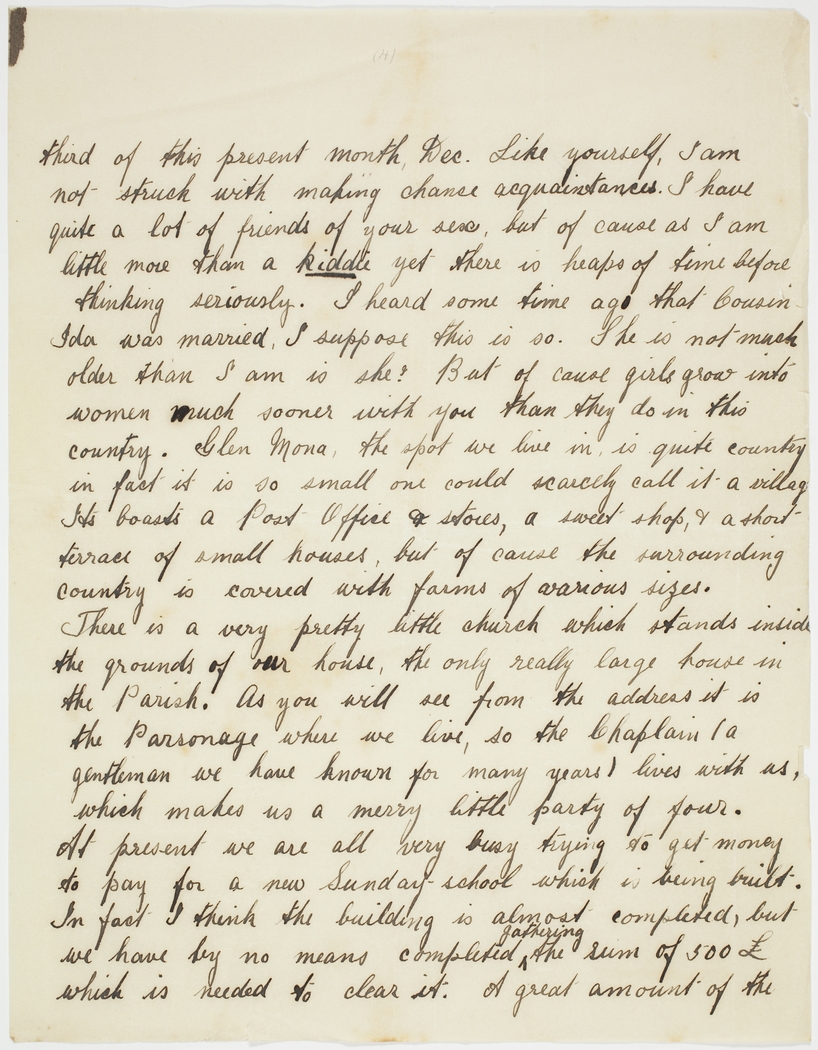 (4)
third of this present month, Dec. Like yourself, I am
not struck with making chance acquaintances. I have
quite a lot of friends of your sex, but of cause as I am
little more than a kiddie yet there is heaps of time before
thinking seriously. I heard some time ago that Cousin
Ida was married, I suppose this is so. She is not much
older than I am is she? But of cause girls grow into
women much sooner with you than they do in this
country. Glen Mona, the spot we live in, is quite country
in fact it is so small one could scarcely call it a villag
Its boasts a Post Office & stores, a sweet shop, & a short
terrace of small houses, but of cause the surrounding
country is covered with farms of various sizes.
There is a very pretty little church which stands inside
the grounds of our house, the only really large house in
the Parish. As you will see from the address it is
the Parsonage where we live, so the Chaplain (a
gentleman we have known for many years) lives with us,
which makes us a merry little party of four.
At present we are all very busy trying to get money
to pay for a new Sunday-school which is being built.
In fact I think the building is almost completed, but
gathering
we have by no means completed ^ the sum of 500 £
which is needed to clear it. A great amount of the